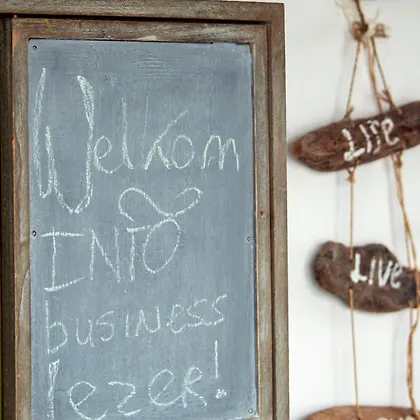 Welkom
INTO
business
lezer!
Life
LIVE